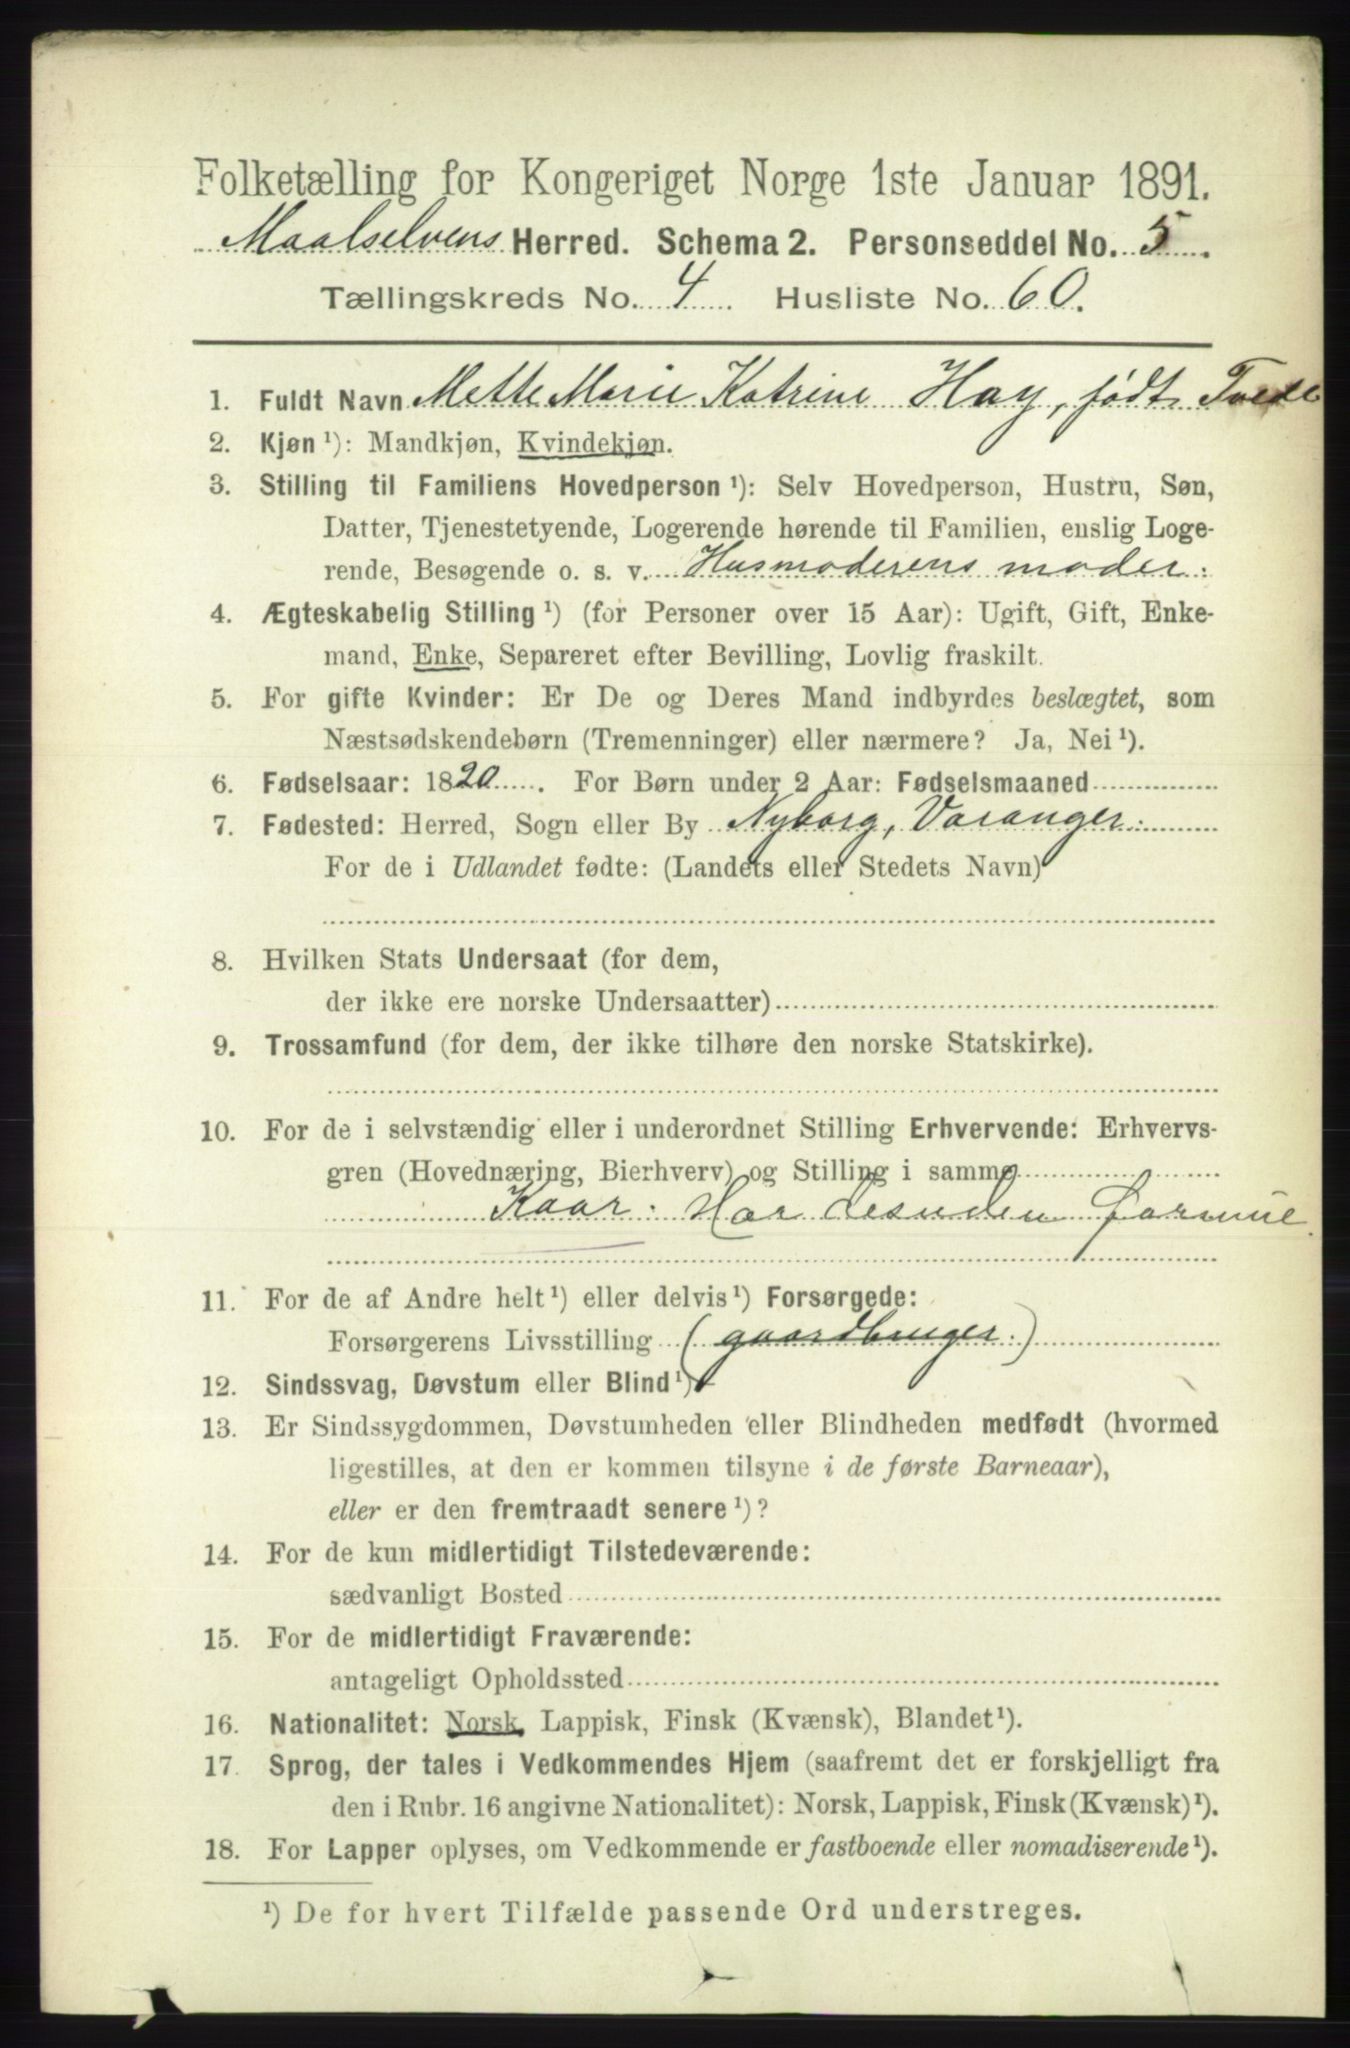 Folketælling for Kongeriget Norge 1ste Januar 1891.
Maalselvens Herred. Schema 2. Personseddel No. 5.
Tællingskreds No. 4 Husliste No. 60.
1. Fuldt Navn Mette Marie Katrine Hay, født Tvede
2. Kjøn ¹): Mandkjøn, Kvindekjøn.
3. Stilling til Familiens Hovedperson ¹): Selv Hovedperson, Hustru, Søn,
Datter, Tjenestetyende, Logerende hørende til Familien, enslig Loge-
rende, Besøgende o. s. v. Husmoderens moder.
4. Ægteskabelig Stilling ¹) (for Personer over 15 Aar): Ugift, Gift, Enke-
mand, Enke, Separeret efter Bevilling, Lovlig fraskilt.
5. For gifte Kvinder: Er De og Deres Mand indbyrdes beslægtet, som
Næstsødskendebørn (Tremenninger) eller nærmere? Ja, Nei ¹).
6. Fødselsaar: 1820. For Børn under 2 Aar: Fødselsmaaned
7. Fødested: Herred, Sogn eller By Nyborg, Varanger.
For de i Udlandet fødte: (Landets eller Stedets Navn)
8. Hvilken Stats Undersaat (for dem,
der ikke ere norske Undersaatter)
9. Trossamfund (for dem, der ikke tilhøre den norske Statskirke).
10. For de i selvstændig eller i underordnet Stilling Erhvervende: Erhvervs-
gren (Hovednæring, Bierhverv) og Stilling i samme
Kaar. Har desuden formue.
11. For de af Andre helt ¹) eller delvis ¹) Forsørgede:
Forsørgerens Livsstilling (gaardbruger.)
12. Sindssvag, Døvstum eller Blind ¹)
13. Er Sindssygdommen, Døvstumheden eller Blindheden medfødt (hvormed
ligestilles, at den er kommen tilsyne i de første Barneaar),
eller er den fremtraadt senere ¹)?
14. For de kun midlertidigt Tilstedeværende:
sædvanligt Bosted
15. For de midlertidigt Fraværende:
antageligt Opholdssted
16. Nationalitet: Norsk, Lappisk, Finsk (Kvænsk), Blandet ¹).
17. Sprog, der tales i Vedkommendes Hjem (saafremt det er forskjelligt fra
den i Rubr. 16 angivne Nationalitet): Norsk, Lappisk, Finsk (Kvænsk) ¹).
18. For Lapper oplyses, om Vedkommende er fastboende eller nomadiserende ¹).
¹) De for hvert Tilfælde passende Ord understreges.